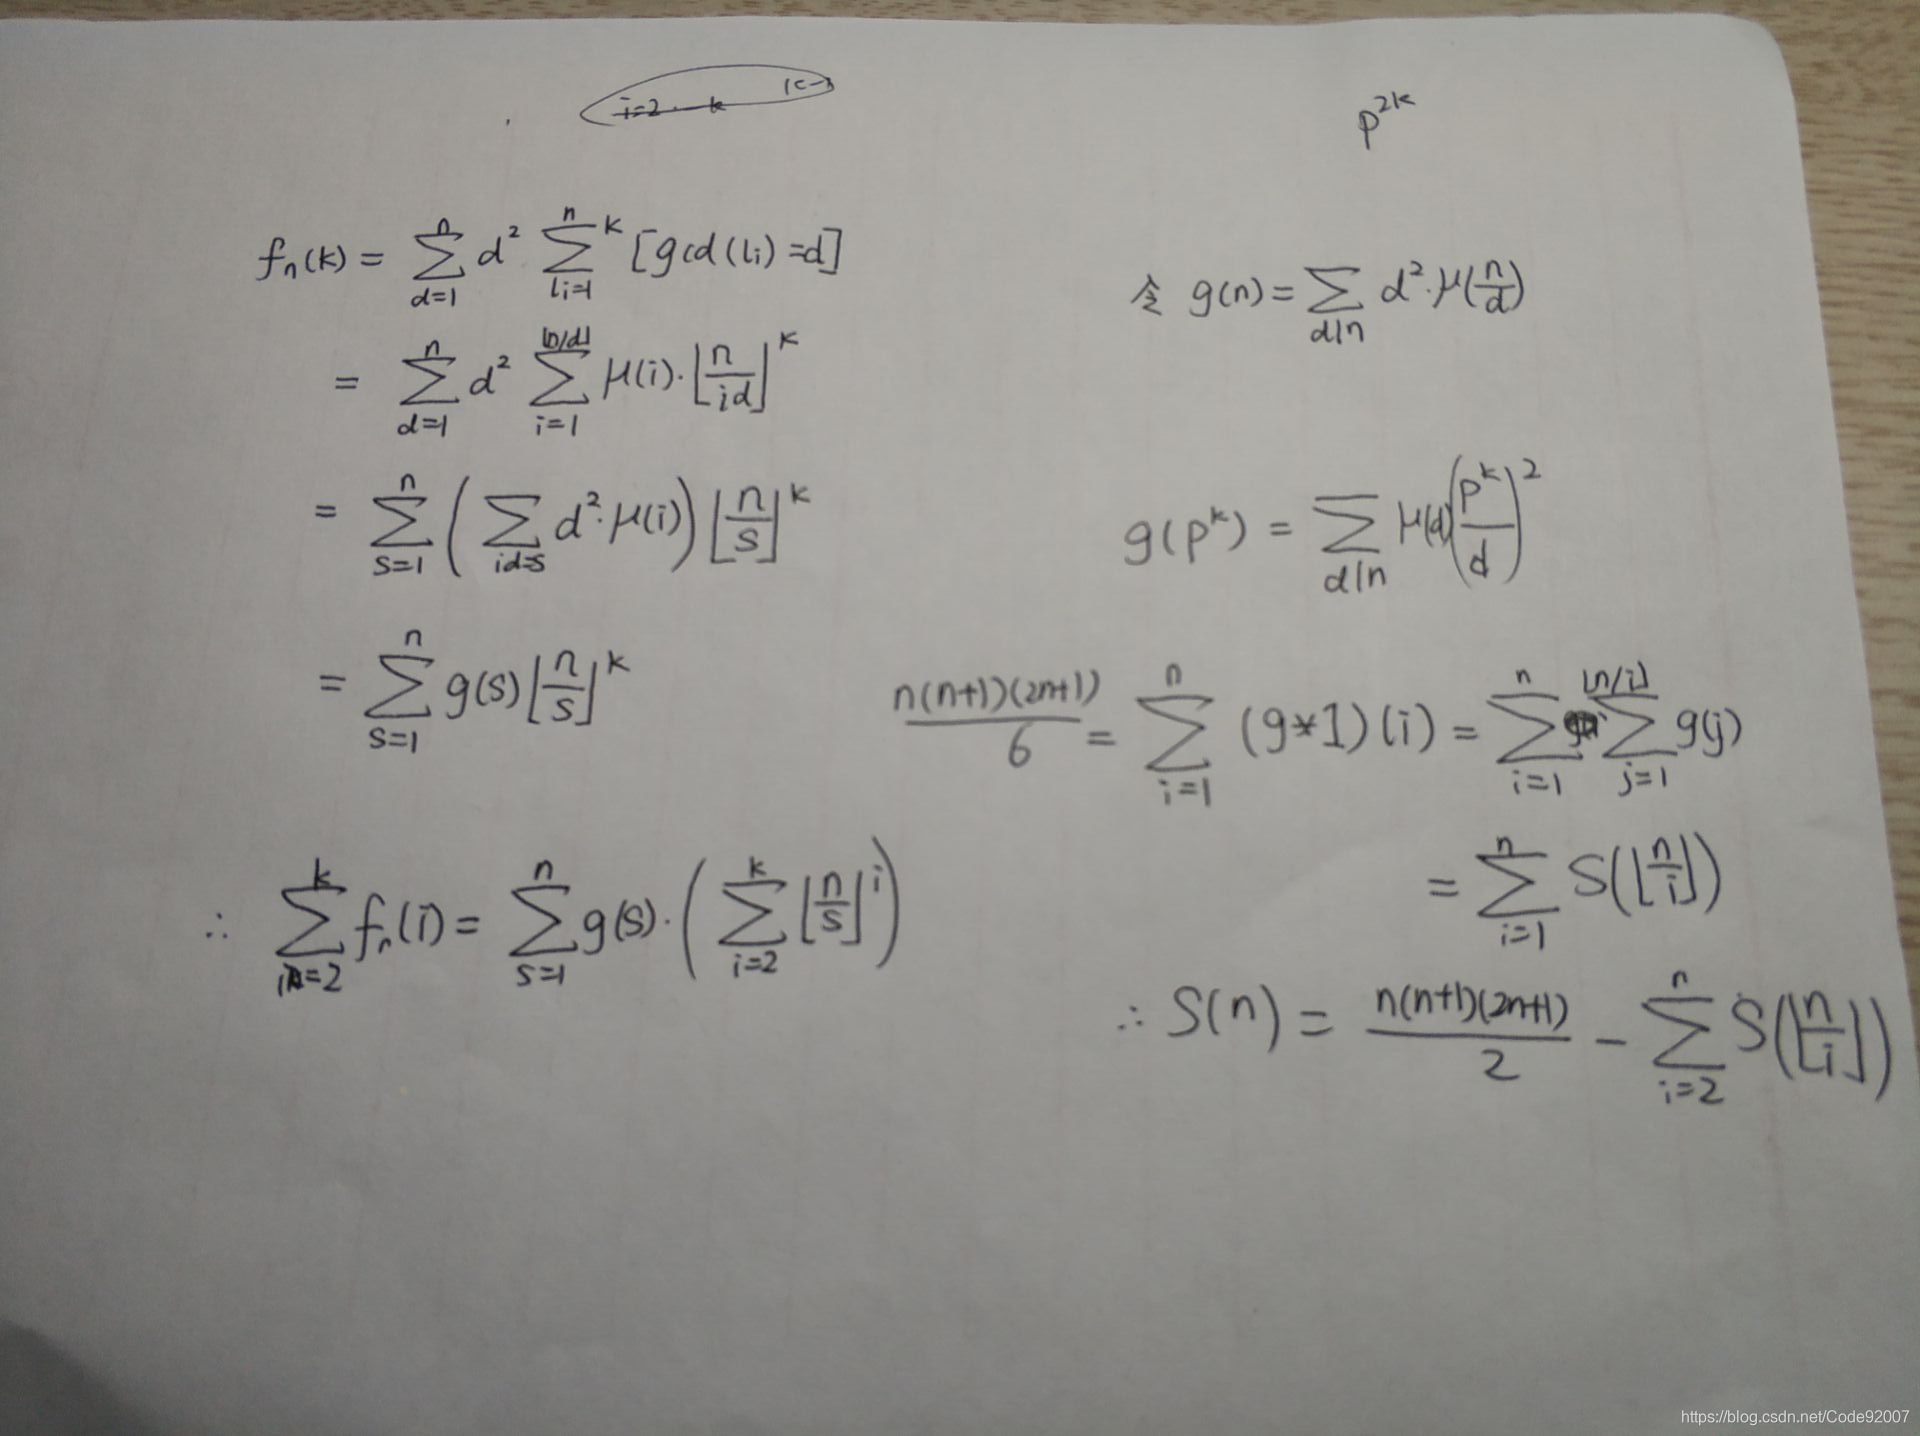 i=2 … k
p^{2k}
f_n(k) = \sum_{d=1}^{n} d^2 \sum_{l_i=1}^{n}{}^k [gcd(l_i)=d]
= \sum_{d=1}^{n} d^2 \sum_{i=1}^{⌊n/d⌋} μ(i)·⌊\frac{n}{id}⌋^k
= \sum_{s=1}^{n} ( \sum_{id=s} d^2·μ(i) ) ⌊\frac{n}{s}⌋^k
= \sum_{s=1}^{n} g(s) ⌊\frac{n}{s}⌋^k
∴ \sum_{i=2}^{k} f_n(i) = \sum_{s=1}^{n} g(s)·( \sum_{i=2}^{k} ⌊\frac{n}{s}⌋^i )
令 g(n) = \sum_{d|n} d^2·μ(\frac{n}{d})
g(p^k) = \sum_{d|n} μ(d) (\frac{p^k}{d})^2
\frac{n(n+1)(2n+1)}{6} = \sum_{i=1}^{n} (g*1)(i) = \sum_{i=1}^{n} \sum_{j=1}^{⌊n/i⌋} g(j)
= \sum_{i=1}^{n} S(⌊\frac{n}{i}⌋)
∴ S(n) = \frac{n(n+1)(2n+1)}{2} - \sum_{i=2}^{n} S(⌊\frac{n}{i}⌋)
https://blog.csdn.net/Code92007